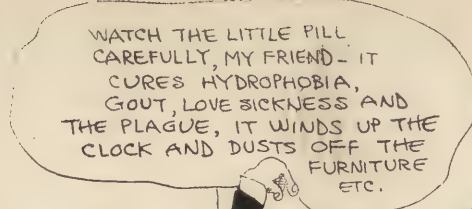 WATCH THE LITTLE PILL
CAREFULLY, MY FRIEND - IT
CURES HYDROPHOBIA,
GOUT, LOVE SICKNESS AND
THE PLAGUE, IT WINDS UP THE
CLOCK AND DUSTS OFF THE
FURNITURE
ETC.